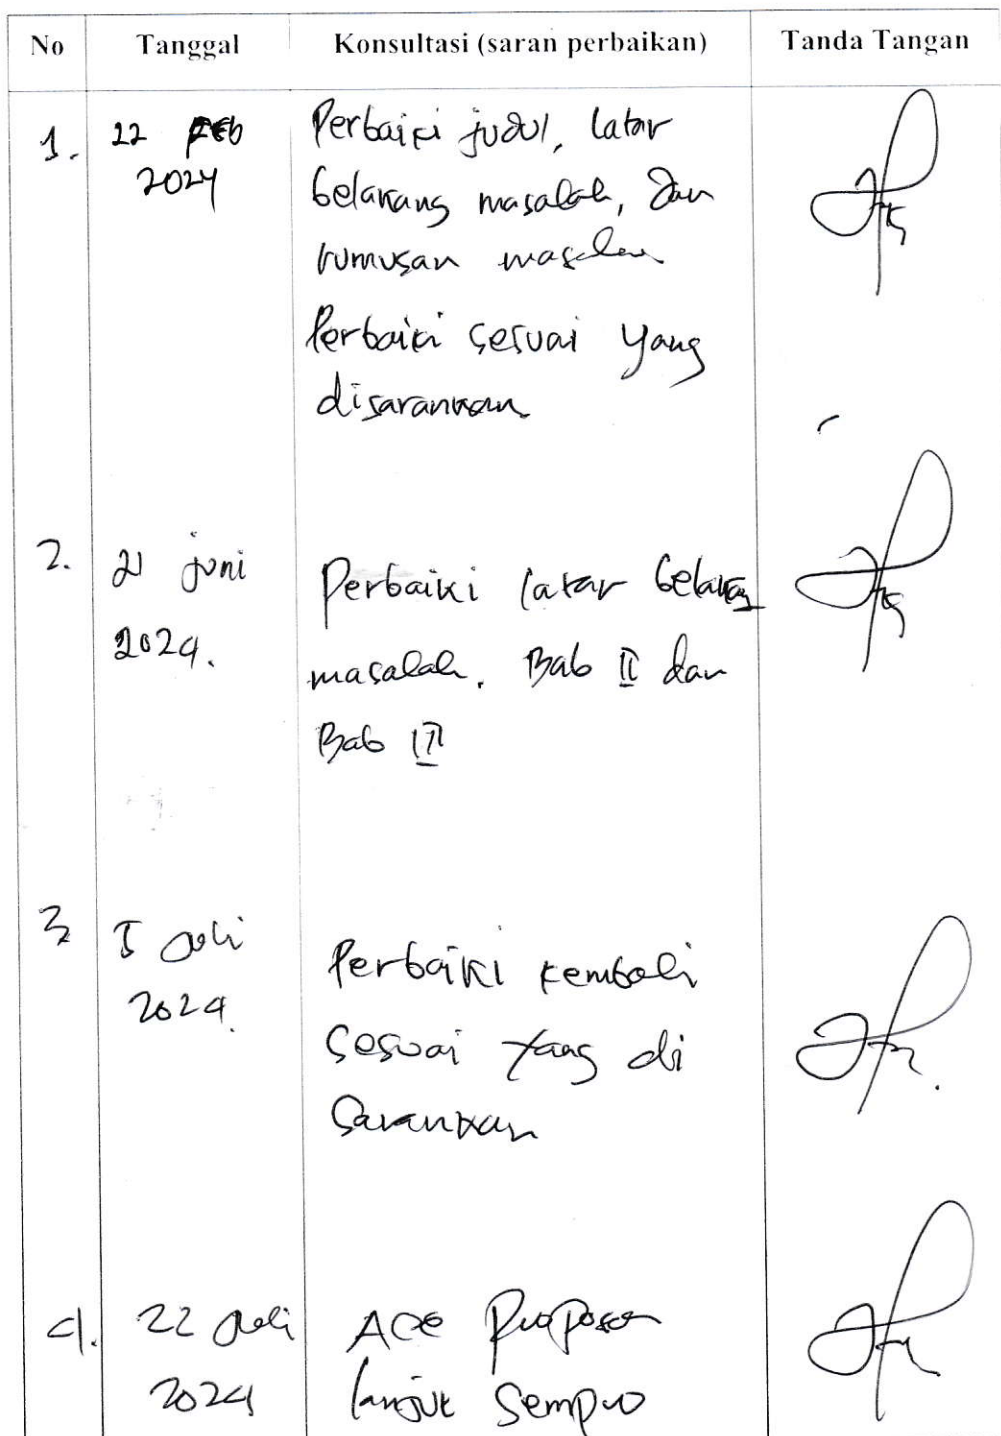 No Tanggal Konsultasi (saran perbaikan) Tanda Tangan
1. 22 Feb 2024
Perbaiki judul, latar
belakang masalah, dan
rumusan masalah
Perbaiki sesuai yang
disarankan
2. 21 juni
2024.
Perbaiki latar belakang
masalah. Bab II dan
Bab III
3 5 Juli
2024.
Perbaiki kembali
sesuai yang di
sarankan
4. 22 Juli
2024
ACC Proposal
lanjut Sempro